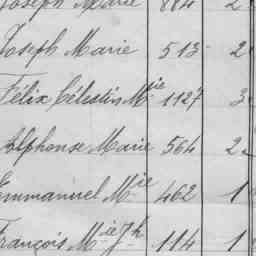 Joseph Marie 884 2
Joseph Marie 513 2
Félix Célestin Mie 1127 3
Alphonse Marie 564 2
Emmanuel Mie 462 1
François Mie Jh 114 1